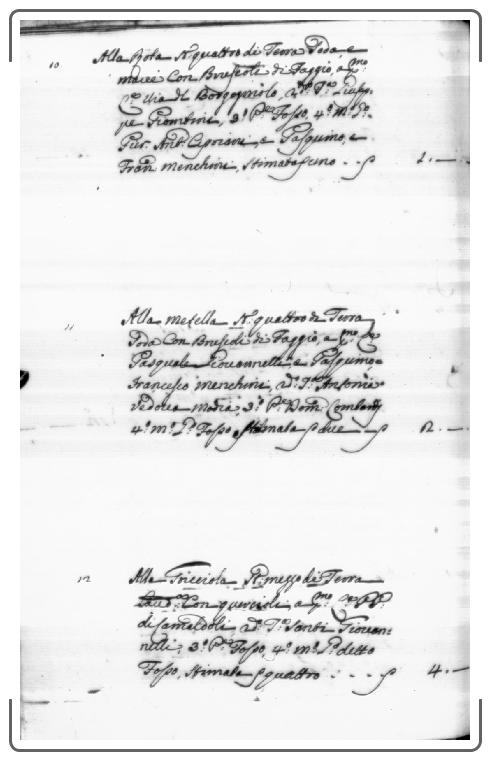 10 Alla Rota St.ª quattro di Terra Soda, e
macei Con Bruscoli di Faggio, a p.mo
C.ª di Borgognolo, 2.º P.º Giusep
pe Piombini, 3.º P.º Fosso, 4.º m.º P.º
Pier Ant.º Cipriani, e Pasquino, e
Fran.co Menchini, Stimata uno . . 1 . —
11 Alla Mezella St.ª quattro di Terra
Soda Con Bruscoli di Faggio, a p.mo
Pasquale Giovannelli, e Pasquino, e
Francesco Menchini, 2.º P.º Antonio
Vedova Maria, 3.º P.º Dom.co
4.º m.º P.º Fosso Stimata due . . 2 . —
12 Alla Tricciola St.ª mezzo di Terra
Con quercioli a p.mo P.P.
di Camaldoli 2.º P.º Santi Giovan
nelli, 3.º P.º Fosso, 4.º m.º P.º detto
Fosso, Stimata quattro . . . 4 . —